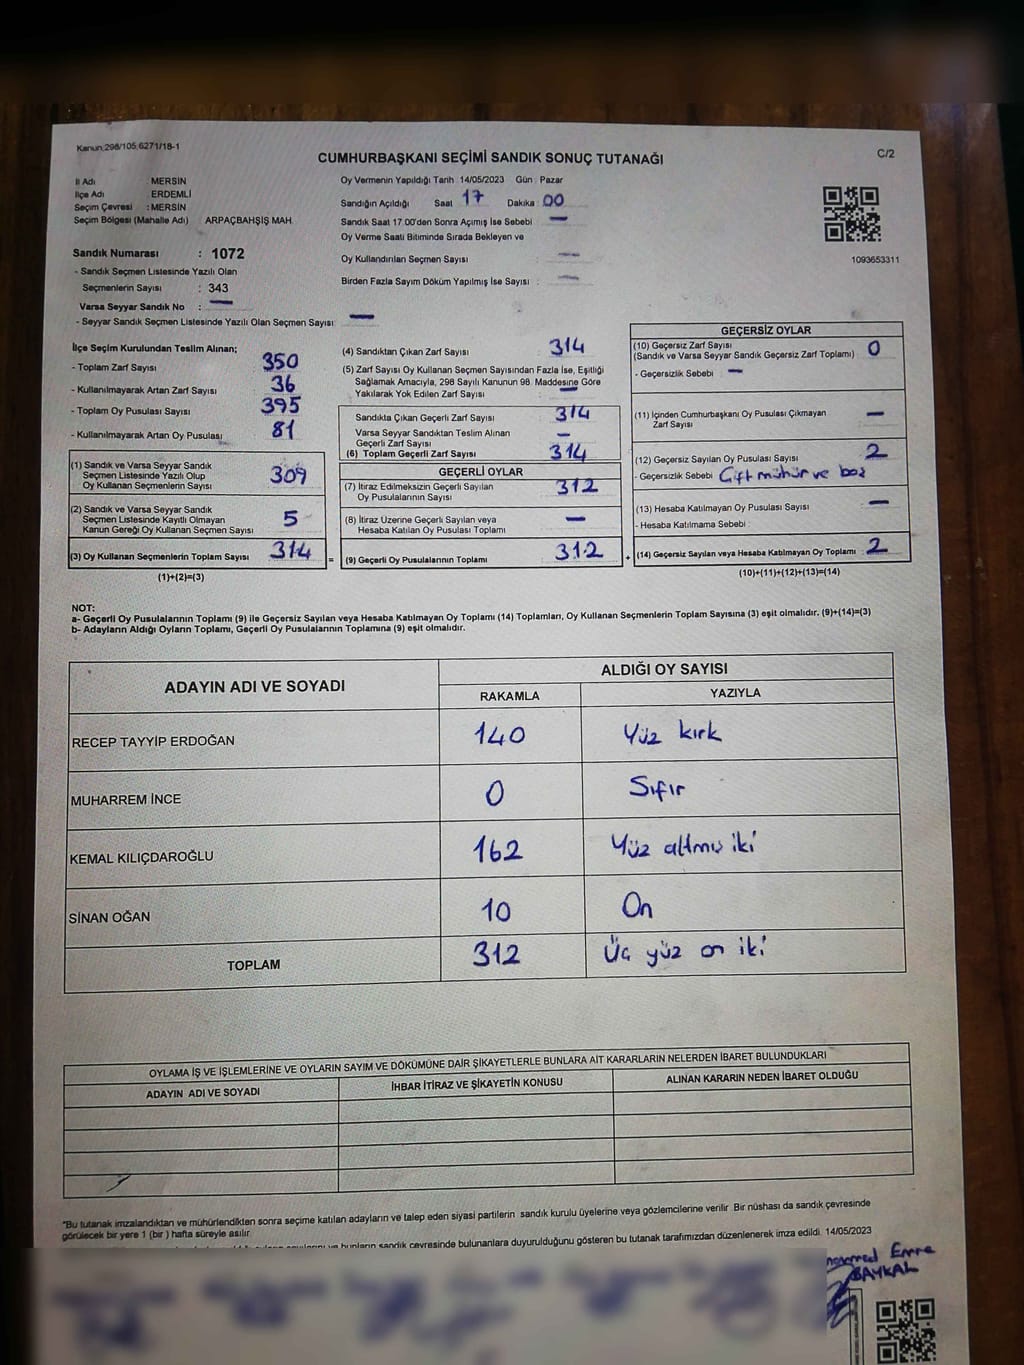 Kanun;298/105;6271/18-1
C/2
CUMHURBAŞKANI SEÇİMİ SANDIK SONUÇ TUTANAĞI
İl Adı : MERSİN
İlçe Adı : ERDEMLİ
Seçim Çevresi : MERSİN
Seçim Bölgesi (Mahalle Adı) ARPAÇBAHŞİŞ MAH.
Sandık Numarası : 1072
- Sandık Seçmen Listesinde Yazılı Olan
Seçmenlerin Sayısı : 343
Varsa Seyyar Sandık No : —
- Seyyar Sandık Seçmen Listesinde Yazılı Olan Seçmen Sayısı: —
Oy Vermenin Yapıldığı Tarih :14/05/2023 Gün : Pazar
Sandığın Açıldığı Saat 17 Dakika 00
Sandık Saat 17.00'den Sonra Açımış İse Sebebi —
Oy Verme Saati Bitiminde Sırada Bekleyen ve
Oy Kullandırılan Seçmen Sayısı —
Birden Fazla Sayım Döküm Yapılmış İse Sayısı : —
1093653311
İlçe Seçim Kurulundan Teslim Alınan;
- Toplam Zarf Sayısı 350
- Kullanılmayarak Artan Zarf Sayısı 36
- Toplam Oy Pusulası Sayısı 395
- Kullanılmayarak Artan Oy Pusulası 81
(1) Sandık ve Varsa Seyyar Sandık
Seçmen Listesinde Yazılı Olup
Oy Kullanan Seçmenlerin Sayısı 309
(2) Sandık ve Varsa Seyyar Sandık
Seçmen Listesinde Kayıtlı Olmayan
Kanun Gereği Oy Kullanan Seçmen Sayısı 5
(3) Oy Kullanan Seçmenlerin Toplam Sayısı 314 =
(1)+(2)=(3)
(4) Sandıktan Çıkan Zarf Sayısı 314
(5) Zarf Sayısı Oy Kullanan Seçmen Sayısından Fazla İse, Eşitliği
Sağlamak Amacıyla, 298 Sayılı Kanunun 98. Maddesine Göre
Yakılarak Yok Edilen Zarf Sayısı —
Sandıkta Çıkan Geçerli Zarf Sayısı 314
Varsa Seyyar Sandıktan Teslim Alınan
Geçerli Zarf Sayısı —
(6) Toplam Geçerli Zarf Sayısı 314
GEÇERLİ OYLAR
(7) İtiraz Edilmeksizin Geçerli Sayılan
Oy Pusulalarının Sayısı 312
(8) İtiraz Üzerine Geçerli Sayılan veya
Hesaba Katılan Oy Pusulası Toplamı —
(9) Geçerli Oy Pusulalarının Toplamı 312 +
GEÇERSİZ OYLAR
(10) Geçersiz Zarf Sayısı
(Sandık ve Varsa Seyyar Sandık Geçersiz Zarf Toplamı) 0
- Geçersizlik Sebebi : —
(11) İçinden Cumhurbaşkanı Oy Pusulası Çıkmayan
Zarf Sayısı —
(12) Geçersiz Sayılan Oy Pusulası Sayısı 2
- Geçersizlik Sebebi Çift mühür ve boş
(13) Hesaba Katılmayan Oy Pusulası Sayısı —
- Hesaba Katılmama Sebebi :
(14) Geçersiz Sayılan veya Hesaba Katılmayan Oy Toplamı 2
(10)+(11)+(12)+(13)=(14)
NOT:
a- Geçerli Oy Pusulalarının Toplamı (9) ile Geçersiz Sayılan veya Hesaba Katılmayan Oy Toplamı (14) Toplamları, Oy Kullanan Seçmenlerin Toplam Sayısına (3) eşit olmalıdır. (9)+(14)=(3)
b- Adayların Aldığı Oyların Toplamı, Geçerli Oy Pusulalarının Toplamına (9) eşit olmalıdır.
ADAYIN ADI VE SOYADI ALDIĞI OY SAYISI
RAKAMLA YAZIYLA
RECEP TAYYİP ERDOĞAN 140 Yüz kırk
MUHARREM İNCE 0 Sıfır
KEMAL KILIÇDAROĞLU 162 Yüz altmış iki
SİNAN OĞAN 10 On
TOPLAM 312 Üç yüz on iki
OYLAMA İŞ VE İŞLEMLERİNE VE OYLARIN SAYIM VE DÖKÜMÜNE DAİR ŞİKAYETLERLE BUNLARA AİT KARARLARIN NELERDEN İBARET BULUNDUKLARI
ADAYIN ADI VE SOYADI İHBAR İTİRAZ VE ŞİKAYETİN KONUSU ALINAN KARARIN NEDEN İBARET OLDUĞU
"Bu tutanak imzalandıktan ve mühürlendikten sonra seçime katılan adayların ve talep eden siyasi partilerin sandık kurulu üyelerine veya gözlemcilerine verilir. Bir nüshası da sandık çevresinde
görülecek bir yere 1 (bir) hafta süreyle asılır.
ve bunların sandık çevresinde bulunanlara duyurulduğunu gösteren bu tutanak tarafımızdan düzenlenerek imza edildi. 14/05/2023
Emre
BAYKAL